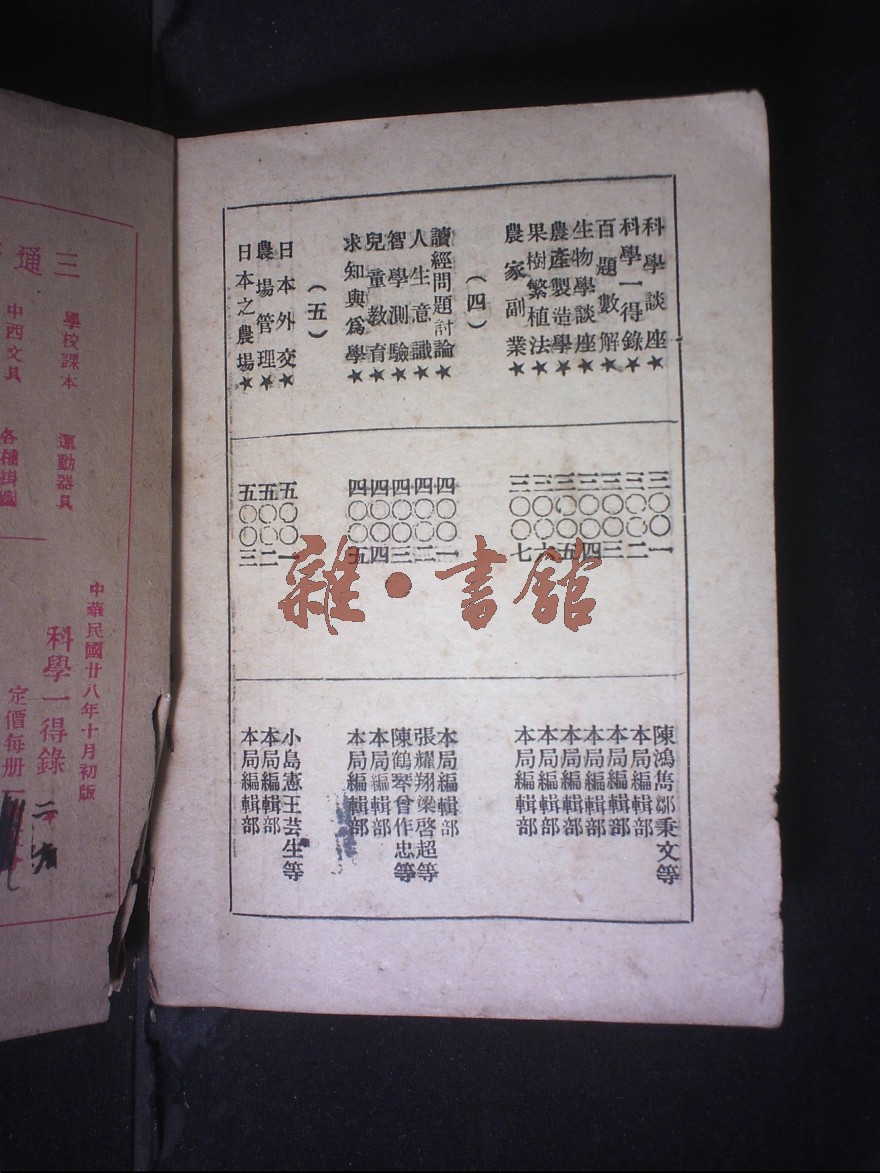 科學談座★ 三〇〇一 陳鴻儁鄒秉文等
科學一得錄★ 三〇〇二 本局編輯部
百題數解★ 三〇〇三 本局編輯部
生物學談座★ 三〇〇四 本局編輯部
農產製造學★ 三〇〇五 本局編輯部
果樹繁植法★ 三〇〇六 本局編輯部
農家副業★ 三〇〇七 本局編輯部
（四）
讀經問題討論★ 四〇〇一 本局編輯部
人生意識★ 四〇〇二 張耀翔梁啓超等
智學測驗★ 四〇〇三 陳鶴琴曾作忠等
兒童教育★ 四〇〇四 本局編輯部
求知與爲學★ 四〇〇五 本局編輯部
（五）
日本外交★ 五〇〇一 小島憲王芸生等
農場管理★ 五〇〇二 本局編輯部
日本之農場★ 五〇〇三 本局編輯部
雜·書館
三通
學校課本 運動器具
中西文具 各種掛圖
中華民國廿八年十月初版
科學一得錄
定價每册